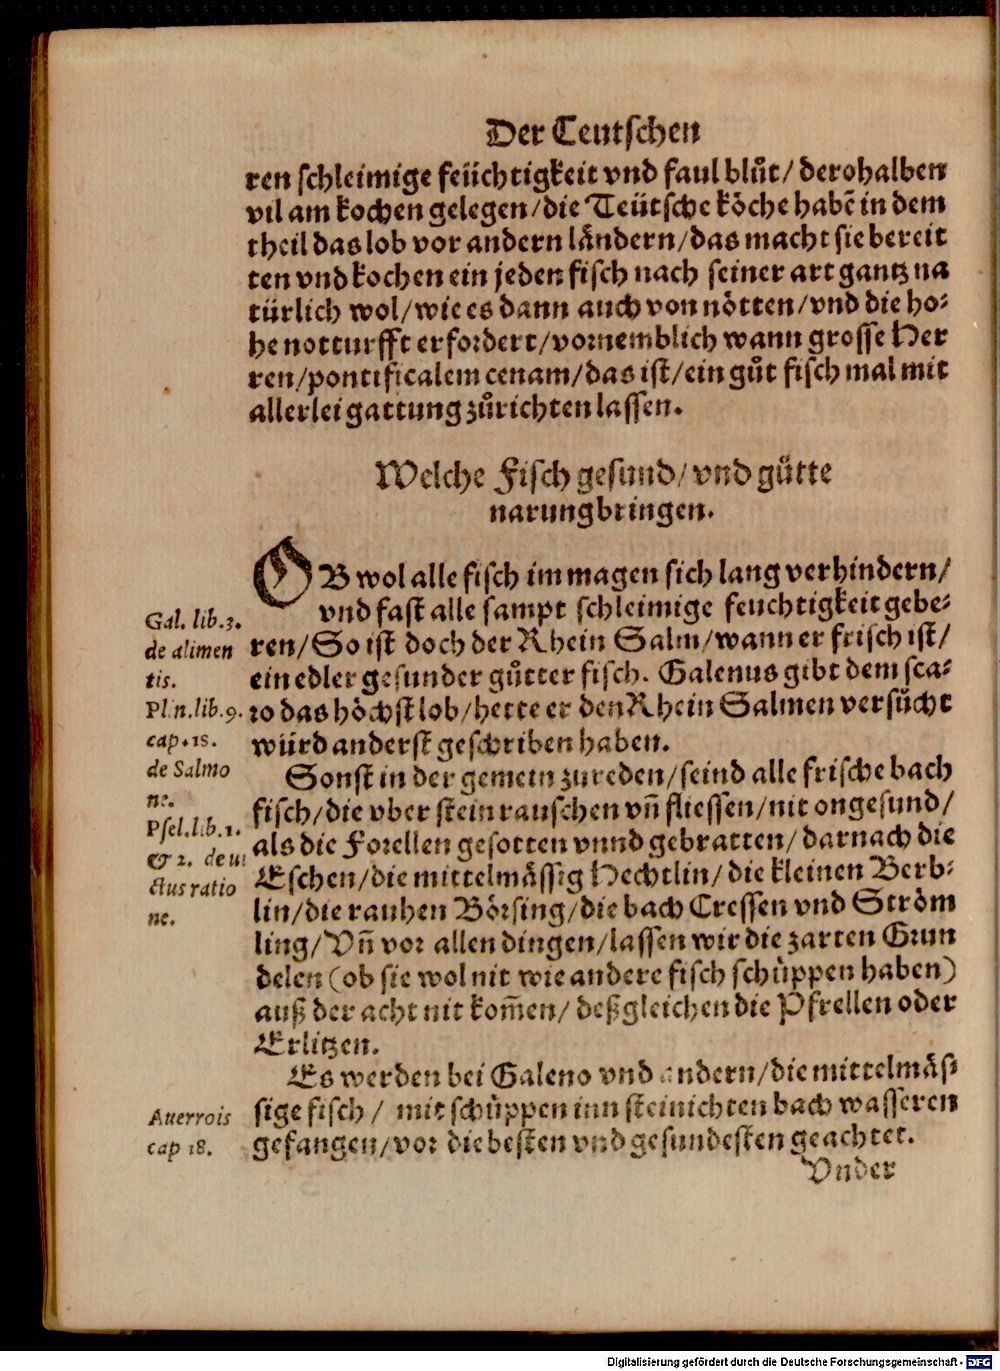 Der Teutschen
ren schleimige feüchtigkeit vnd faul blůt/ derohalben
vil am kochen gelegen/die Teütsche köche habẽ in dem
theil das lob vor andern ländern/das macht sie bereit
ten vnd kochen ein jeden fisch nach seiner art gantz na
türlich wol/wie es dann auch von nötten/vnd die ho-
he notturfft erfordert/vornemblich wann grosse Her
ren/pontificalem cenam/das ist/ein gůt fisch mal mit
allerlei gattung zůrichten lassen.
Welche Fisch gesund/vnd gůtte
narung bringen.
OB wol alle fisch im magen sich lang verhindern/
vnd fast alle sampt schleimige feuchtigkeit gebe-
ren/So ist doch der Rhein Salm/wann er frisch ist/
ein edler gesunder gůtter fisch. Galenus gibt dem sca-
ro das höchst lob/hette er den Rhein Salmen versůcht
würd anderst geschriben haben.
Sonst in der gemein zureden/seind alle frische bach
fisch/die vber stein rauschen vñ fliessen/nit ongesund/
als die Forellen gesotten vnnd gebratten/darnach die
Eschen/die mittelmässig Hechtlin/die kleinen Berb-
lin/die rauhen Börsing/die bach Cressen vnd Ström
ling/Vñ vor allen dingen/lassen wir die zarten Grun
delen (ob sie wol nit wie andere fisch schůppen haben)
auß der acht nit kom̃en/deßgleichen die Pfrellen oder
Erlitzen.
Es werden bei Galeno vnd andern/die mittelmäs-
sige fisch / mit schůppen inn steinichten bach wasseren
gefangen/vor die besten vnd gesundesten geachtet.
Vnder
Gal. lib.3.
de alimen
tis.
Plin.lib.9.
cap.18.
de Salmo
ne.
Psel.lib.1.
& 2. de ui
ctus ratio
ne.
Auerrois
cap 18.
Digitalisierung gefördert durch die Deutsche Forschungsgemeinschaft - DFG